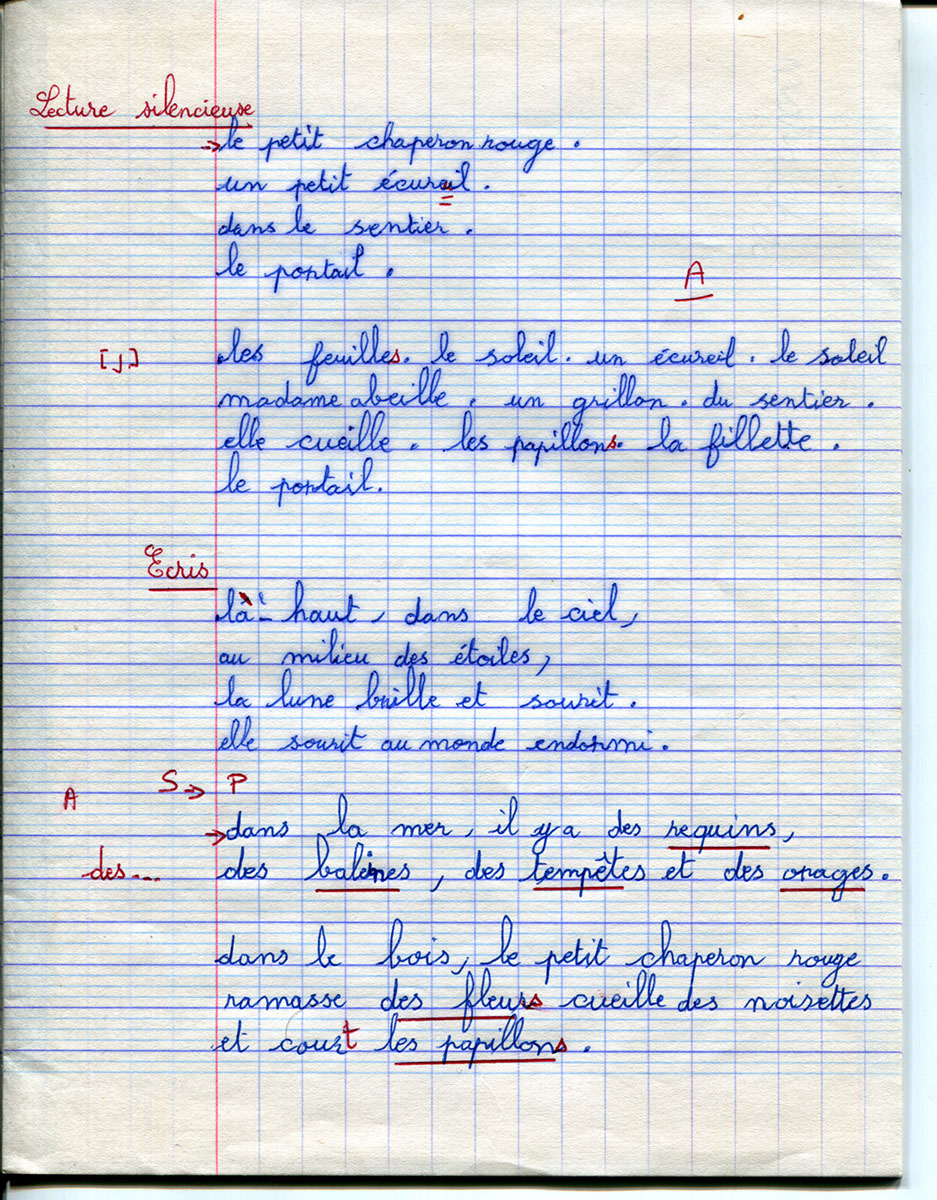 Lecture silencieuse
→ le petit chaperon rouge .
un petit écureuil .
dans le sentier .
le portail .
A
[j] les feuilles. le soleil. un écureil . le soleil
madame abeille . un grillon . du sentier .
elle cueille . les papillons. la fillette .
le portail.
Ecris
là-haut, dans le ciel,
au milieu des étoiles,
la lune brille et sourit .
elle sourit au monde endormi .
S → P
A
→ dans la mer, il y a des requins,
des... des baleines, des tempêtes et des orages .
dans le bois, le petit chaperon rouge
ramasse des fleurs cueille des noisettes
et court les papillons .